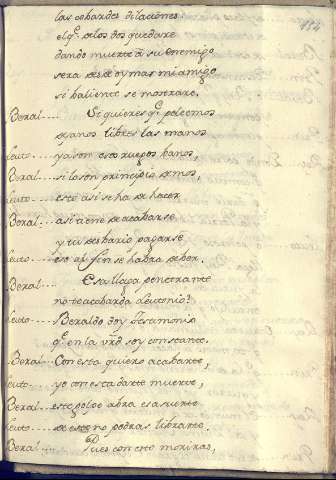 114
las cobardes dilaciones:
el q̃ de los dos quedare
dando muerte a su enemigo
sera desde oy mas mi amigo
si baliente se mostrare.
Beral.... Si quieres q̃ peleemos
dexanos libres las manos
Leuto... ya son esos ruegos banos,
Beral... si lo son principio demos,
Leuto... este asi se ha de hacer
Beral... asi tiene de acabarse
y tu desbario pagarse
Leuto... eso al fin se habra de ber.
Beral.... Esa llaga penetrante
no te acobarda Leutonio?
Leuto.... Beraldo doy testimonio
q̃ en la vrd soy constante.
Beral... Con esta quiero acabarte,
Leuto... yo con esta darte muerte,
Beral... este golpe abra esa suerte
Leuto.... de este no podras librarte.
Beral.... Pues con esto moriras,